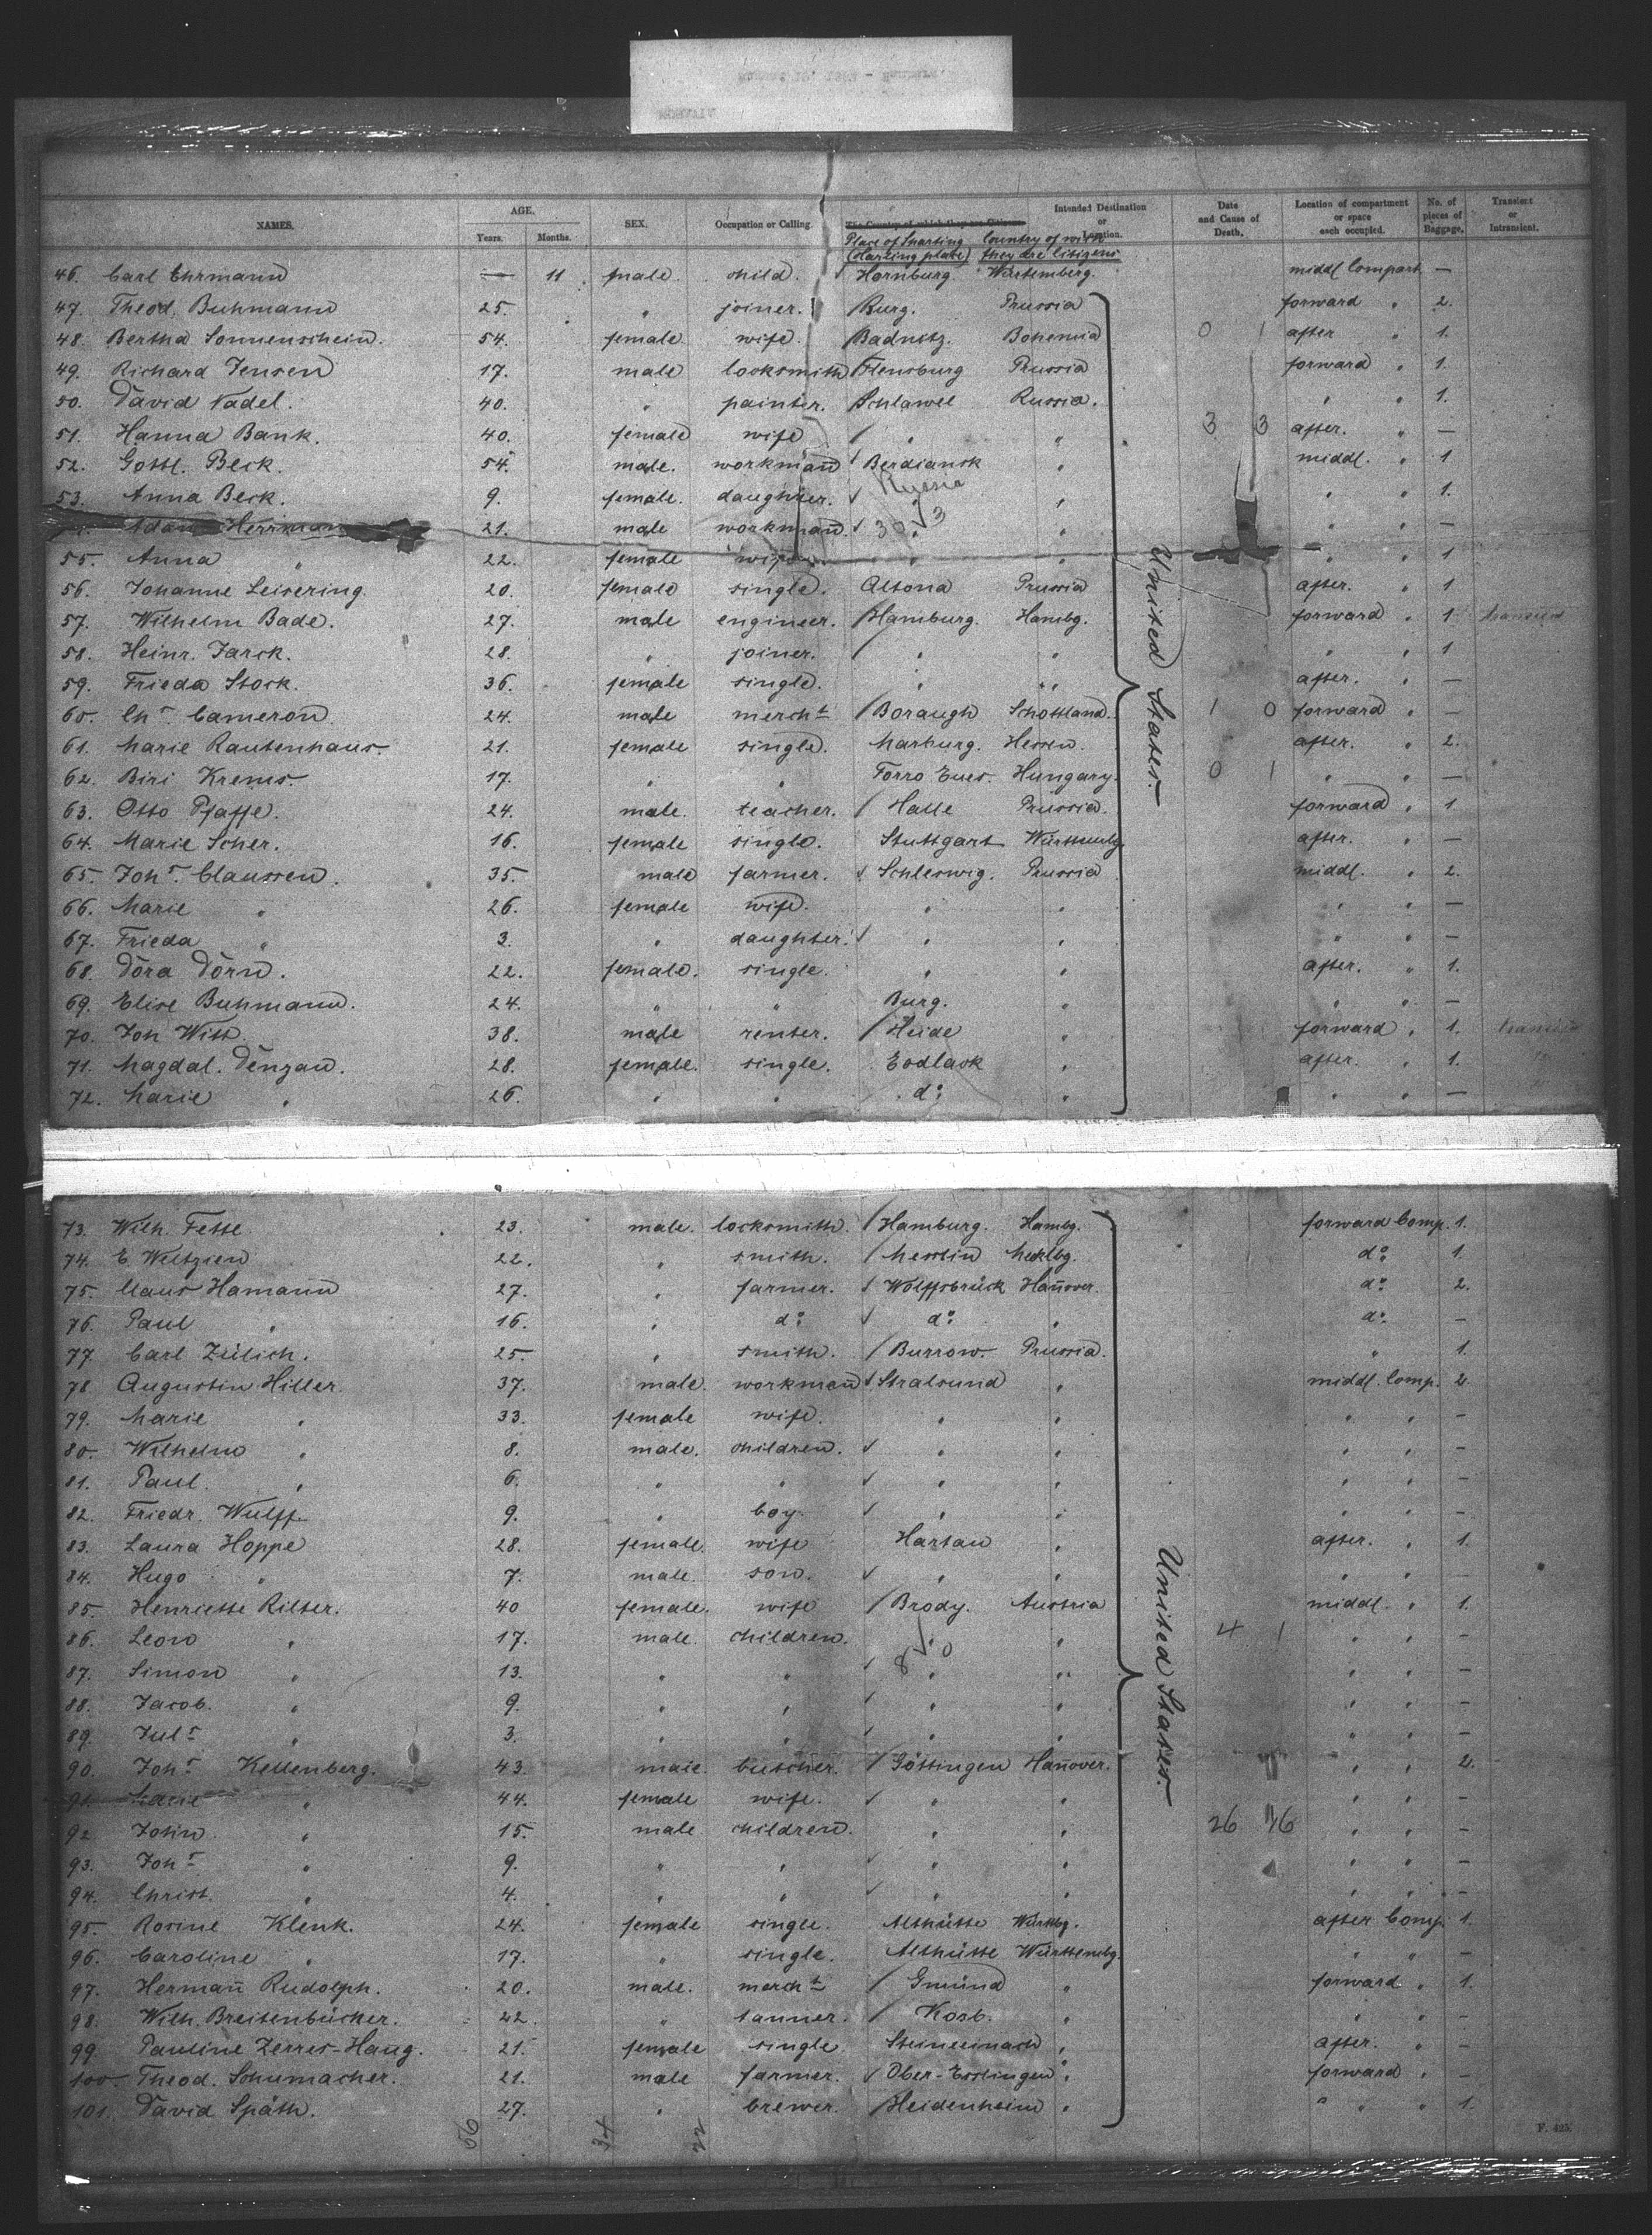 NAMES. AGE. Years. Months. SEX. Occupation or Calling. The Country of which they are Citizens. Intended Destination or Location. Date and Cause of Death. Location of compartment or space each occupied. No. of pieces of Baggage. Transient or Intransient.
Place of Starting (starting place) Country of wich they are Citizens
46. Carl Ehrmann — 11 male child. Hornburg Würtemberg. middl Compart —
47. Theod. Buhmann 25. " joiner. Burg. Prussia forward " 2.
48. Bertha Sonnenschein. 54. female wife. Badnitz. Bohemia 0 1 after " 1.
49. Richard Jensen 17. male locksmith Flensburg Prussia forward " 1.
50. David Nadel. 40. " painter. Schlawel Russia. " " 1.
51. Hanna Bank. 40. female wife " " 3 3 after. " —
52. Gottl. Beck. 54. male. workman Berdiansk " middl. " 1
Russia
53. Anna Beck. 9. female. daughter. " " " " 1.
Adam Herrmann 21. male workman. " " " " —
30 3
55. Anna " 22. female wife. " " " " 1
56. Johanne Leisering. 20. female single. Altona Prussia after. " 1
57. Wilhelm Bade. 27. male engineer. Hamburg. Hambg. forward " 1 transient
58. Heinr. Jarck. 28. " joiner. " " " " 1
59. Frieda Stock. 36. female single. " " after. " —
60. Chr. Cameron. 24. male mercht Boraugh Schottland. 1 0 forward " —
61. Marie Rautenhaus. 21. female single. Marburg. Hessen. after. " 2.
62. Biri Krems. 17. " " Torro Eues. Hungary. 0 1 " " —
63. Otto Pfaffe. 24. male. teacher. Halle Prussia. forward " 1.
64. Marie Scher. 16. female single. Stuttgart Württembg after. " —
65. Johs. Claussen. 35. male farmer. Schleswig. Prussia middl. " 2.
66. Marie " 26. female wife. " " " " —
67. Frieda " 3. " daughter. " " " " —
68. Dora Dorn. 22. female. single. " " after. " 1.
69. Elise Buhmann. 24. " " Burg. " " " —
70. Joh Witt 38. male renter. Heide " forward " 1. transient
71. Magdal. Denzau. 28. female. single. Eodlack " after. " 1.
72. Marie " 26. " " do " " " —
United States.
73. Wilh. Fette 23. male. locksmith. Hamburg. Hambg. forward Comp. 1.
74. E. Weltzien 22. " smith. Messlin Mecklbg. do 1.
75. Claus Hamann 27. " farmer. Wolffsbrück Hanover. do 2.
76. Paul " 16. " do do " do —
77. Carl Zülich. 25. " smith. Burrow. Prussia. " 1.
78 Augustin Hiller 37. male. workman Stralsund " middl. Comp. 2.
79. Marie " 33. female wife. " " " " —
80. Wilhelm " 8. male. children. " " " " —
81. Paul. " 6. " " " " " " —
82. Friedr. Wulff 9. " boy. " " " " —
83. Laura Hoppe 28. female. wife Hartau " after. " 1.
84. Hugo " 7. male. son. " " " " —
85. Henriette Ritter. 40 female. wife Brody. Austria middl. " 1.
86. Leon " 17. male. children. " " 4 1 " " —
8 0
87. Simon " 13. " " " " " " —
88. Jacob. " 9. " " " " " " —
89. Juls " 3. " " " " " " —
90. Johs Kellenberg. 43. male. butcher. Göttingen Hanover. " " 2.
91. Marie " 44. female wife. " " " " —
92 John " 15. male children. " " 26 16 " " —
93. Johs " 9. " " " " " " —
94. Christ. " 4. " " " " " " —
95. Rosine Klenk. 24. female single. Althütte Würtbg. after Comp. 1.
96. Caroline " 17. " single. Althütte Württembg. " " —
97. Hermann Rudolph. 20. male. mercht Gmünd " forward " 1.
98. Wilh. Breitenbücher. 22. " tanner. Korb. " " " —
99 Pauline Zerres-Haug. 21. female single Steineinach " after. " —
100. Theod. Schumacher. 21. male farmer. Ober-Esslingen " forward " —
101. David Späth. 27. " brewer. Heidenheim " " " 1.
United States.
56 34 22
F. 425.